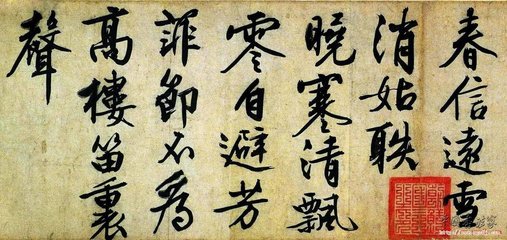 春信遠雪
消姑䠶
曉寒清飄
零自避芳
菲節不為
高樓笛裏
聲